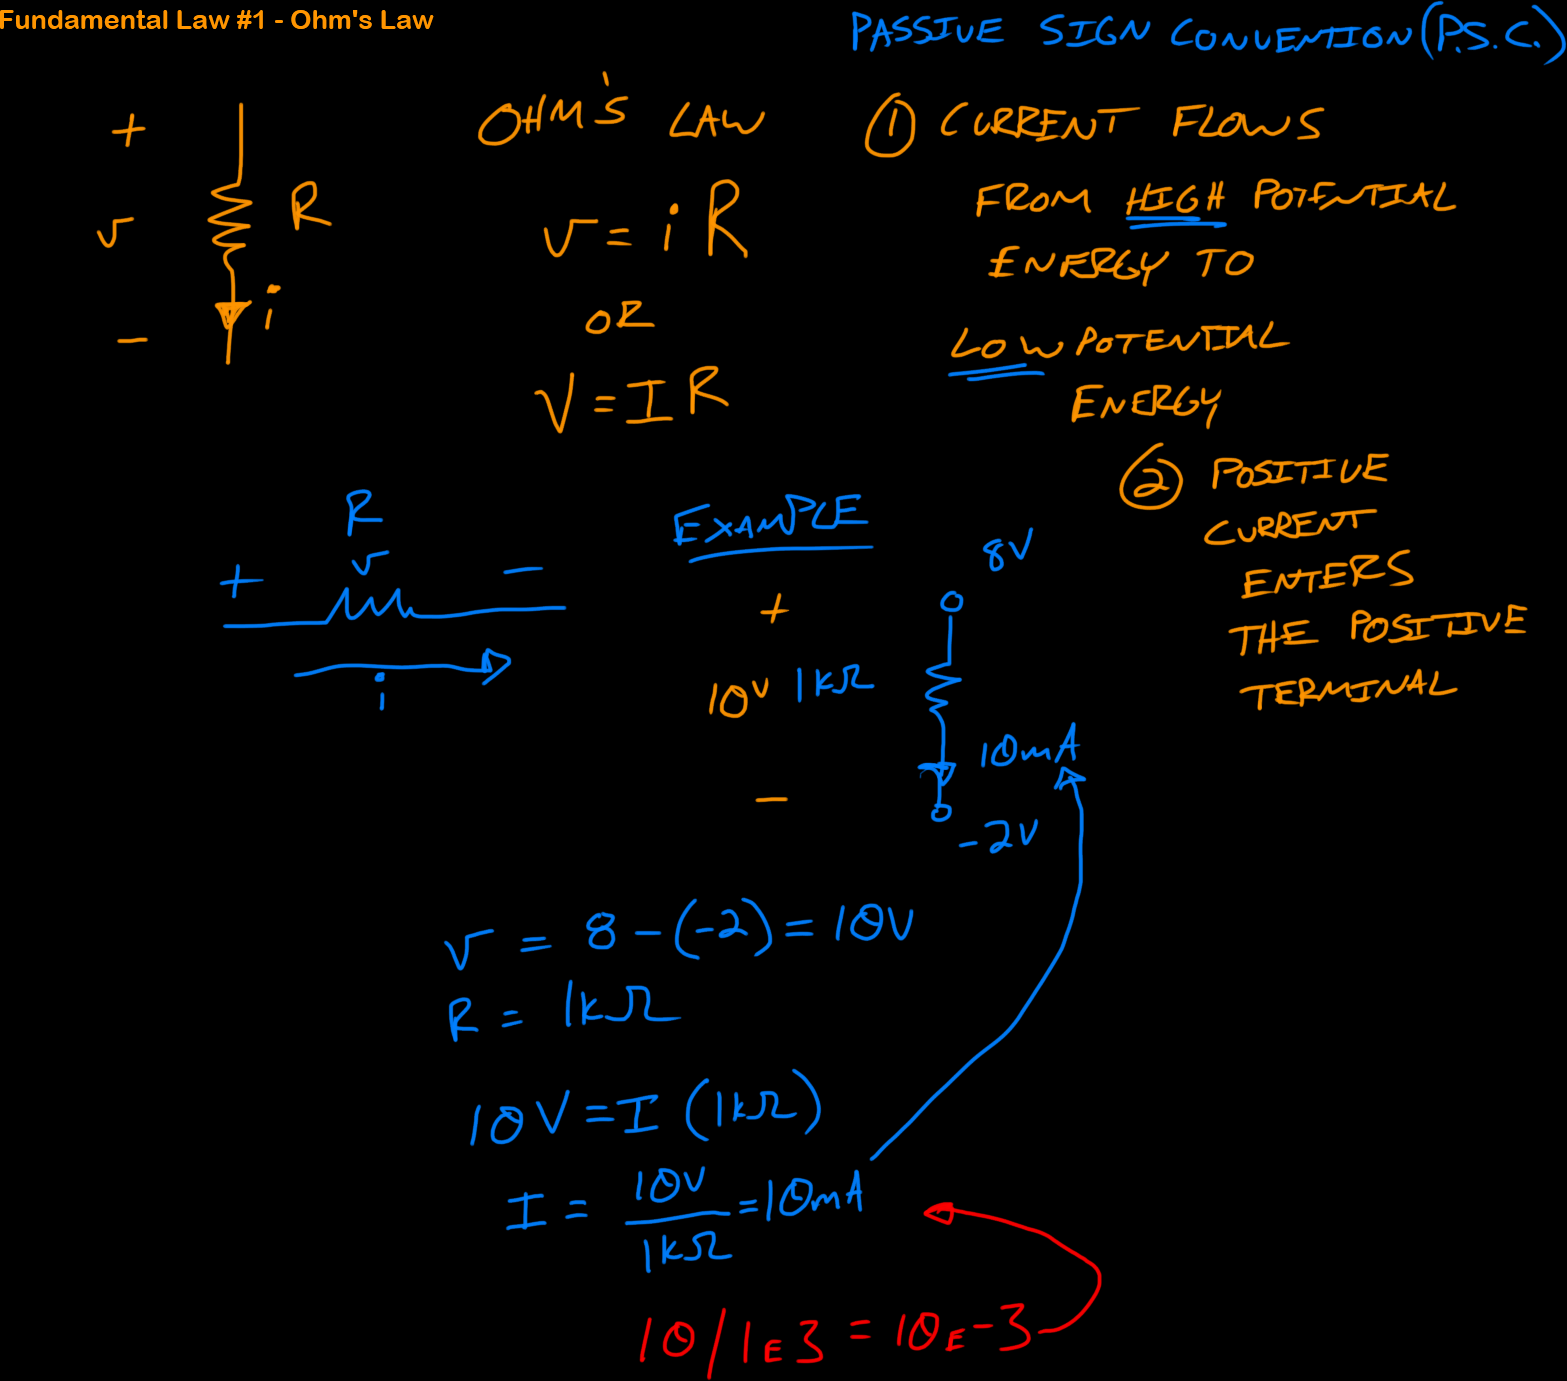 Fundamental Law #1 - Ohm's Law
PASSIVE SIGN CONVENTION (P.S.C.)
+
v
-
R
i
OHM'S LAW
v = i R
OR
V = I R
① CURRENT FLOWS
FROM HIGH POTENTIAL
ENERGY TO
LOW POTENTIAL
ENERGY
② POSITIVE
CURRENT
ENTERS
THE POSITIVE
TERMINAL
R
+ v -
i
EXAMPLE
8V
+
10V 1kΩ
10mA
-
-2V
v = 8 - (-2) = 10V
R = 1kΩ
10V = I (1kΩ)
I = 10V / 1kΩ = 10mA
10/1E3 = 10E-3